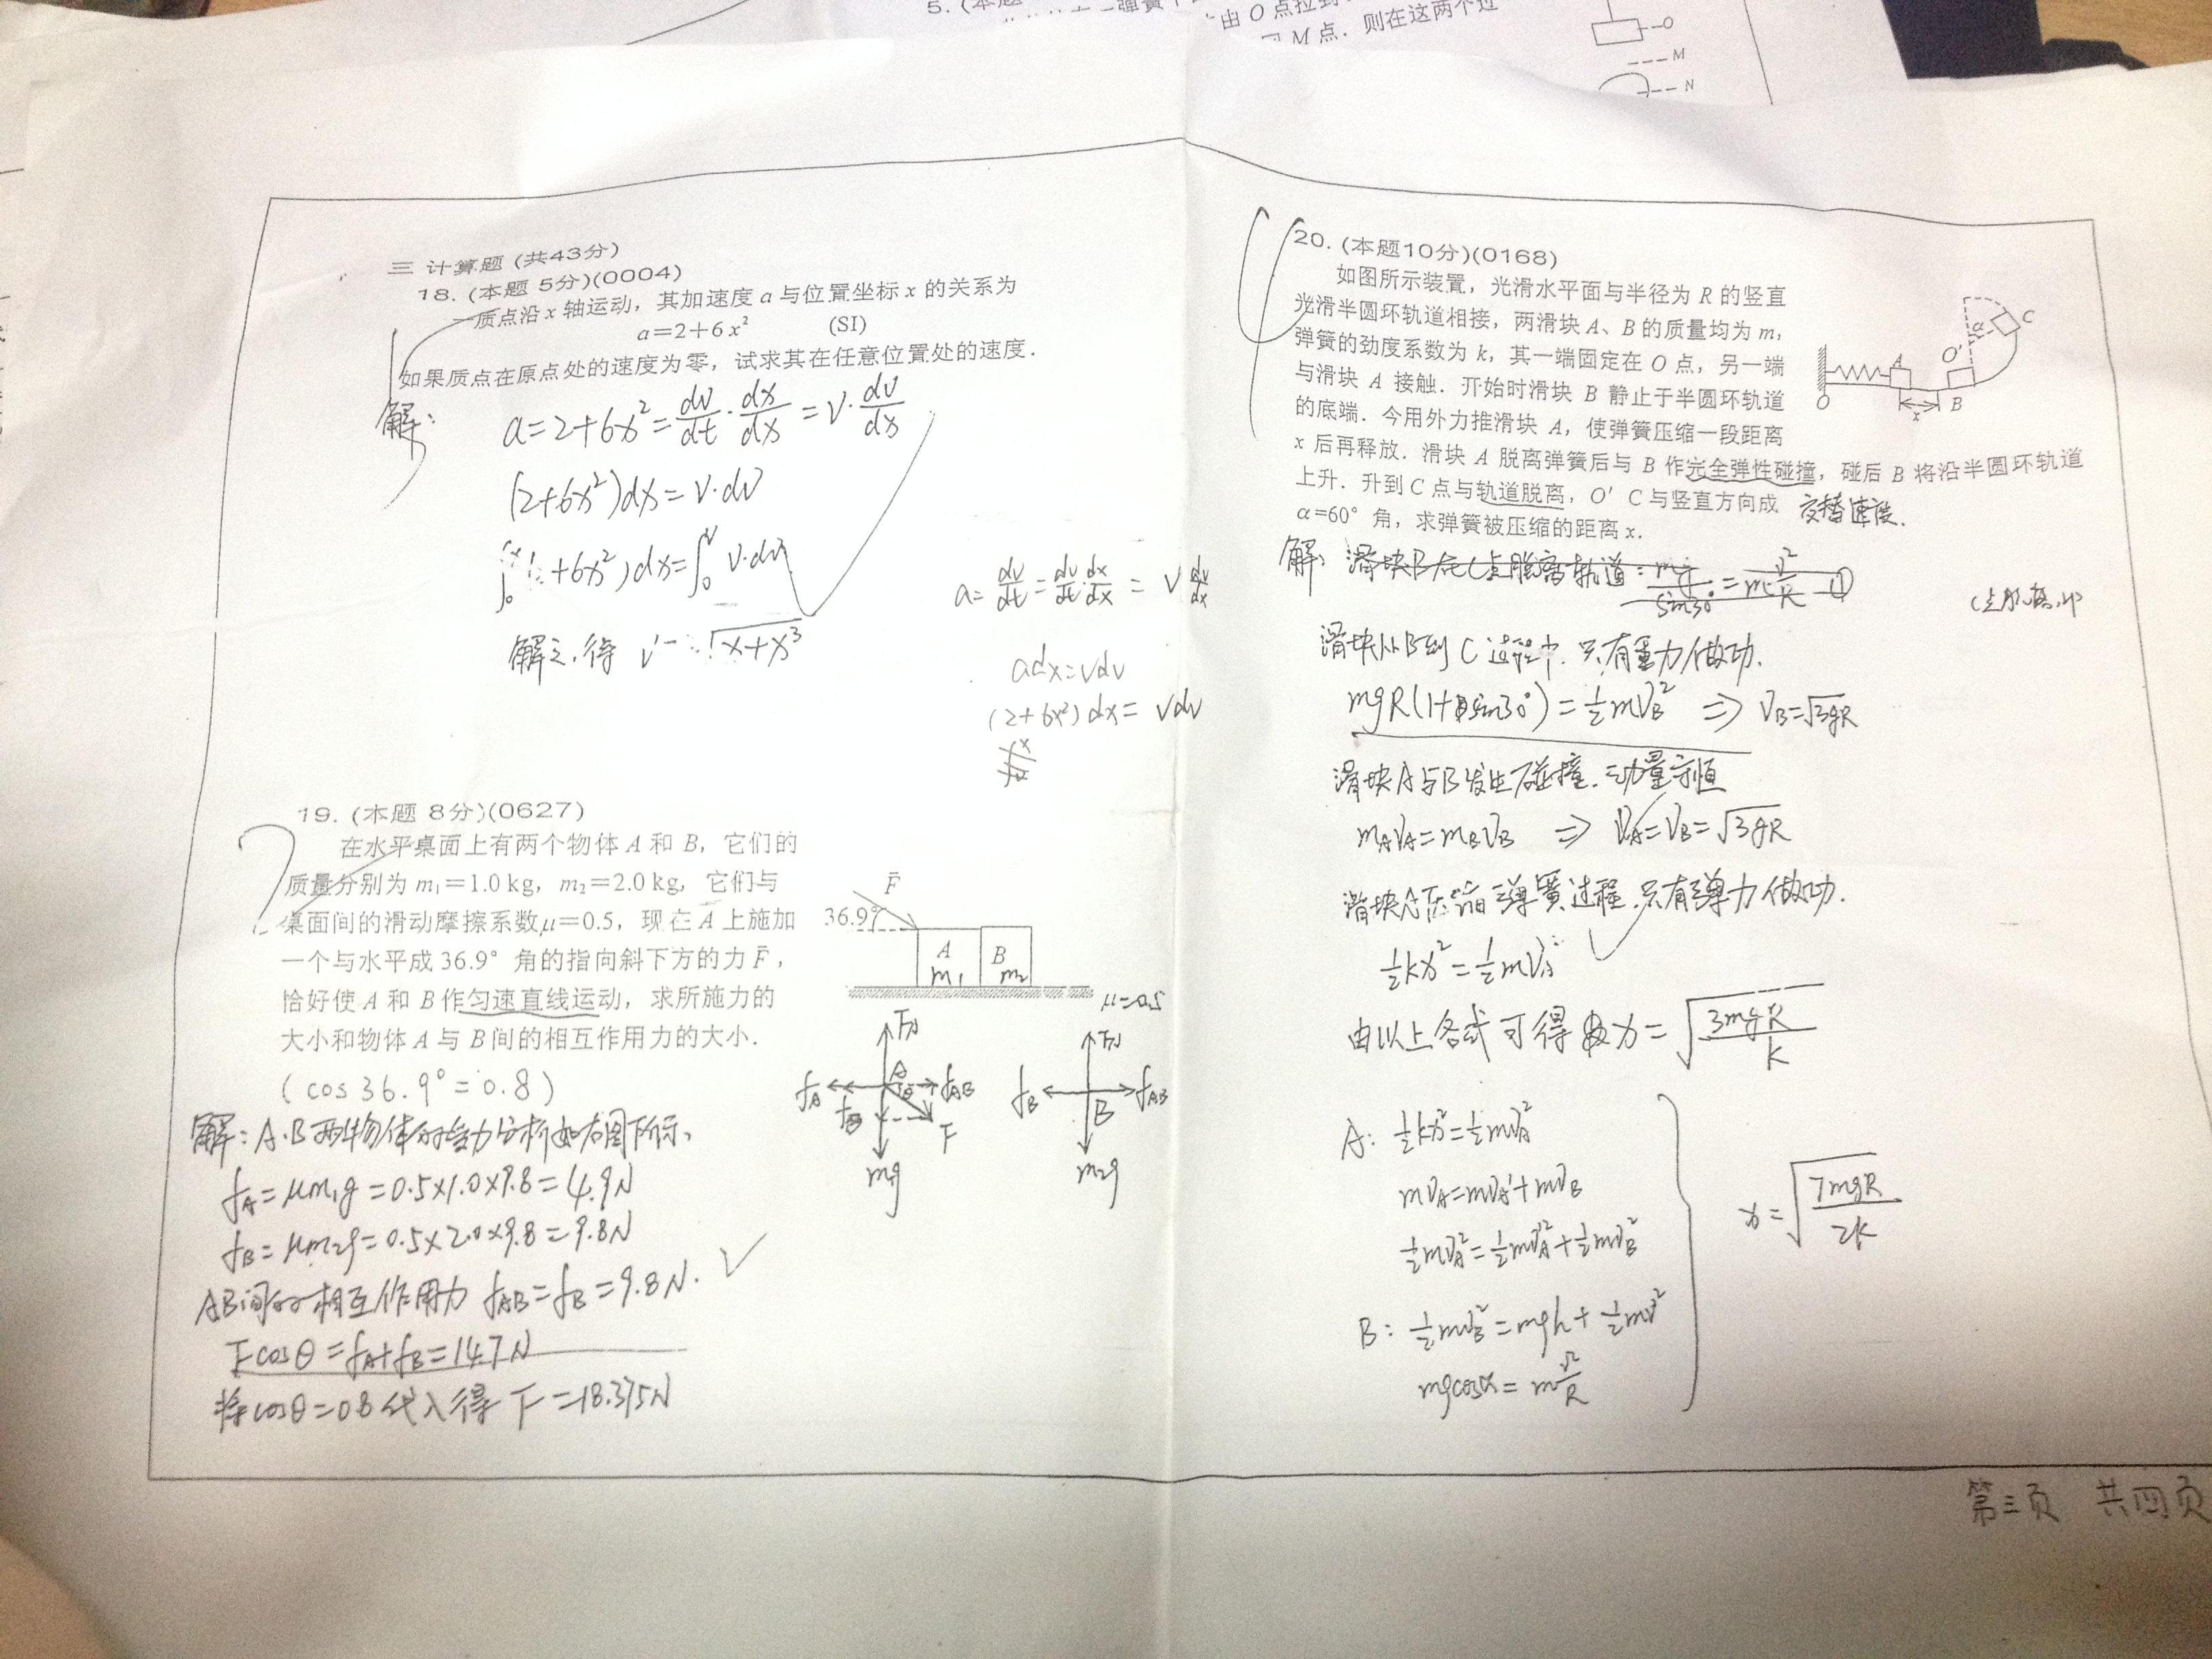 5. (本题
由 O 点拉到
M 点．则在这两个过
O
M
N
三 计算题 (共43分)
18. (本题 5分)(0004)
一质点沿 x 轴运动，其加速度 a 与位置坐标 x 的关系为
a=2+6x² (SI)
如果质点在原点处的速度为零，试求其在任意位置处的速度．
解: a=2+6x²=dv/dt·dx/dx=v·dv/dx
(2+6x²)dx=v·dv
+6x²)dx=∫₀ᵛ v·dv
解之,得 x+x³
a=dv/dt=dv/dt·dx/dx=v dv/dx
adx=vdv
(2+6x²)dx=vdv
19. (本题 8分)(0627)
在水平桌面上有两个物体 A 和 B，它们的
质量分别为 m₁=1.0 kg，m₂=2.0 kg，它们与
桌面间的滑动摩擦系数μ=0.5，现在 A 上施加
一个与水平成 36.9° 角的指向斜下方的力 F̄，
恰好使 A 和 B 作匀速直线运动，求所施力的
大小和物体 A 与 B 间的相互作用力的大小．
(cos 36.9°=0.8)
F̄
36.9°
A B
m₁ m₂
μ=0.5
FN FN
fA A θ fAB fB B fAB
F
mg m₂g
解:A.B两物体的受力分析如右图所示、
fA=μm₁g=0.5×1.0×9.8=4.9N
fB=μm₂g=0.5×2.0×9.8=9.8N
AB间的相互作用力 fAB=fB=9.8N.
Fcosθ=fA+fB=14.7N
将cosθ=0.8代入得 F=18.375N
20. (本题10分)(0168)
如图所示装置，光滑水平面与半径为 R 的竖直
光滑半圆环轨道相接，两滑块 A、B 的质量均为 m，
弹簧的劲度系数为 k，其一端固定在 O 点，另一端
与滑块 A 接触．开始时滑块 B 静止于半圆环轨道
的底端．今用外力推滑块 A，使弹簧压缩一段距离
x 后再释放．滑块 A 脱离弹簧后与 B 作完全弹性碰撞，碰后 B 将沿半圆环轨道
上升．升到 C 点与轨道脱离，O′ C 与竖直方向成 交替速度.
α=60° 角，求弹簧被压缩的距离 x．
α C
O′
A
O x B
解: 滑块B在C点脱离轨道: mg/sin30°=m v²/R ①
滑块从B到C过程中.只有重力做功.
mgR(1+sin30°)=½mvB² ⇒ vB=√3gR
滑块A与B发生碰撞.动量守恒
mAvA=mBvB ⇒ vA=vB=√3gR
滑块A压缩弹簧过程.只有弹力做功.
½kx²=½mvA²
由以上各式可得 x=√(3mgR/k)
A: ½kx²=½mvA²
mvA=mvA′+mvB
½mvA²=½mvA′²+½mvB²
B: ½mvB²=mgh+½mv²
mgcosα=m v²/R
x=√(7mgR/2k)
第三页 共四页